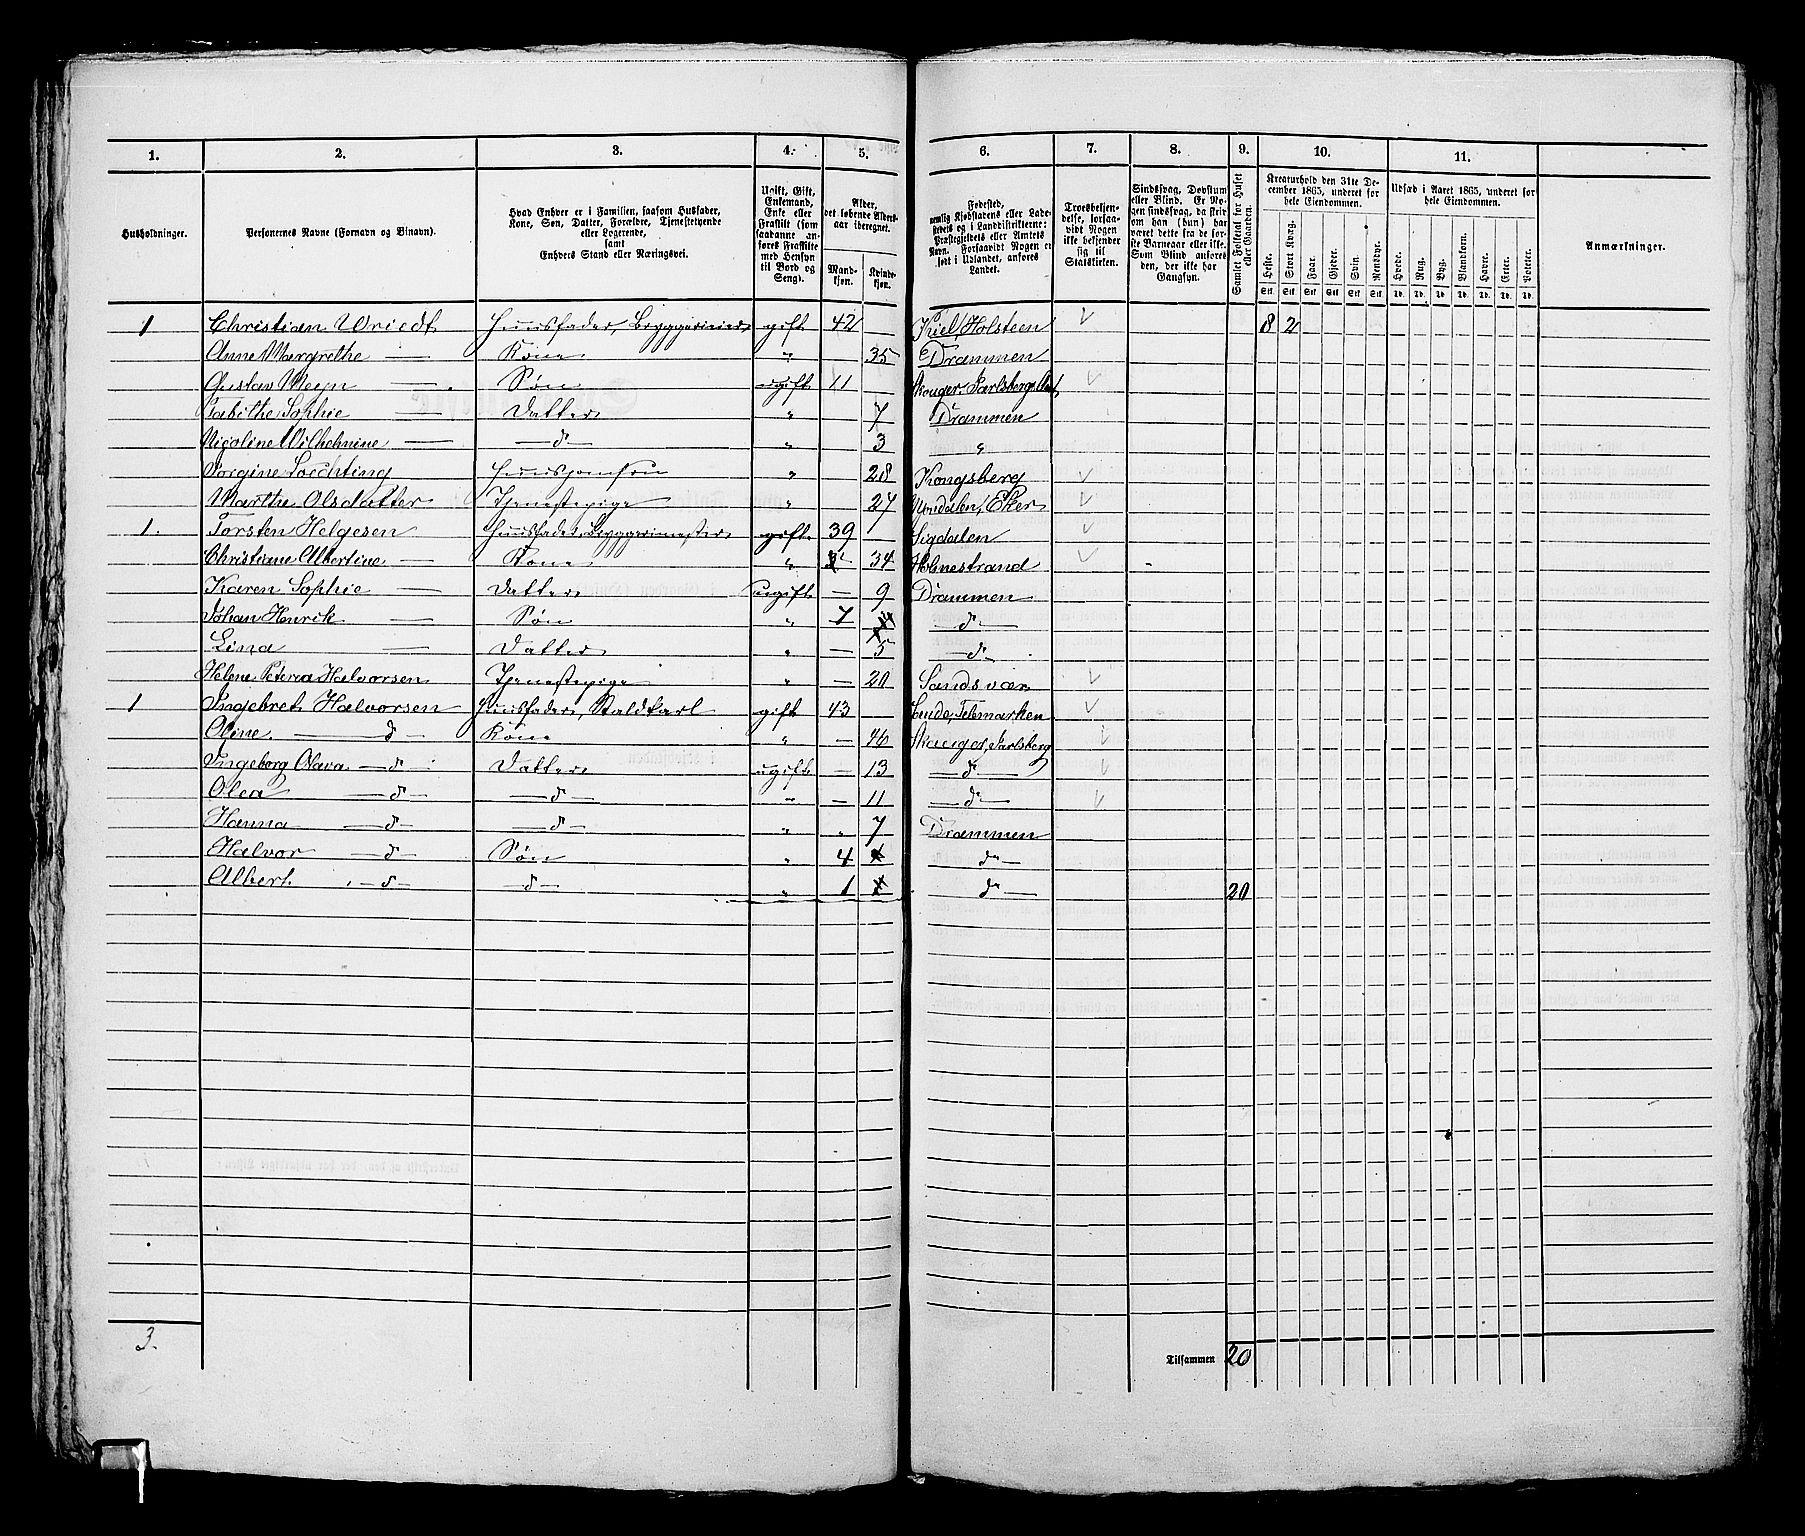 1. 2. 3. 4. 5. 6. 7. 8. 9. 10. 11.
Husholdninger.
Personernes Navne (Fornavn og Binavn).
Hvad Enhver er i Familien, saasom Husfader,
Kone, Søn, Datter, Forældre, Tjenestetyende
eller Logerende,
samt
Enhvers Stand eller Næringsvei.
Ugift, Gift,
Enkemand,
Enke eller
Fraskilt (som
saadanne an-
føres Fraskilte
med Hensyn
til Bord og
Seng).
Alder,
det løbende Alders-
aar iberegnet.
Mand-
kjøn.
Kvinde-
kjøn.
Fødested,
nemlig Kjøbstadens eller Lade-
stedets og i Landdistrikterne:
Præstegjeldets eller Amtets
Navn. Forsaavidt Nogen er
født i Udlandet, anføres
Landet.
Troesbekjen-
delse, forsaa-
vidt Nogen
ikke bekjender
sig til
Statskirken.
Sindssvag, Døvstum
eller Blind. Er No-
gen sindssvag, da skri-
ves om han (hun) har
været dette fra de før-
ste Barneaar eller ikke.
Som Blind anføres
den, der ikke har
Gangsyn.
Samlet Folketal for Huset
eller Gaarden.
Kreaturhold den 31te De-
cember 1865, underet for
hele Eiendommen.
Heste. Stort Kvæg. Faar. Gjeder. Svin. Rensdyr.
Stk. Stk. Stk. Stk. Stk. Stk.
Udsæd i Aaret 1865, underet for
hele Eiendommen.
Hvede. Rug. Byg. Blandkorn. Havre. Erter. Poteter.
Td. Td. Td. Td. Td. Td. Td.
Anmærkninger.
1 Christian Wriedt Huusfader, Bryggerieier gift 42 Kiel, Holsteen 8 2
Anne Margrethe — Kone " 35 Drammen
Gustav Meyn — Søn ugift 11 Skouger, Jarlsberg Amt
Tabithe Sophie — Datter " 7 Drammen
Nicoline Wilhelmine — d " 3 "
Jorgine Lochting Huusjomfru " 28 Kongsberg
Marthe Olsdatter Tjenestepige " 24 Eker
1. Torsten Helgesen Huusfader, Bryggerimester gift 39 Sigdalen
Christiane Albertine — Kone " 34 Holmestrand
Karen Sophie — Datter ugift — 9 Drammen
Johan Henrik — Søn " 7 — d —
Lina — Datter " — 5 — d —
Helene Peterea Halvorsen Tjenestepige " — 20 Sandsvær
1 Ingebret Halvorsen Huusfader, Staldkarl gift 43 Lunde, Telemarken
Oline — d — Kone " — 46 Skouger, Jarlsberg
Ingeborg Olava — d Datter ugift — 13 — d —
Olea — d — — d — " — 11 — d —
Hanna — d — — d — " " 7 Drammen
Halvor — d — Søn " 4 d —
Albert — d — — d — " 1 d — 20
3. Tilsammen 20